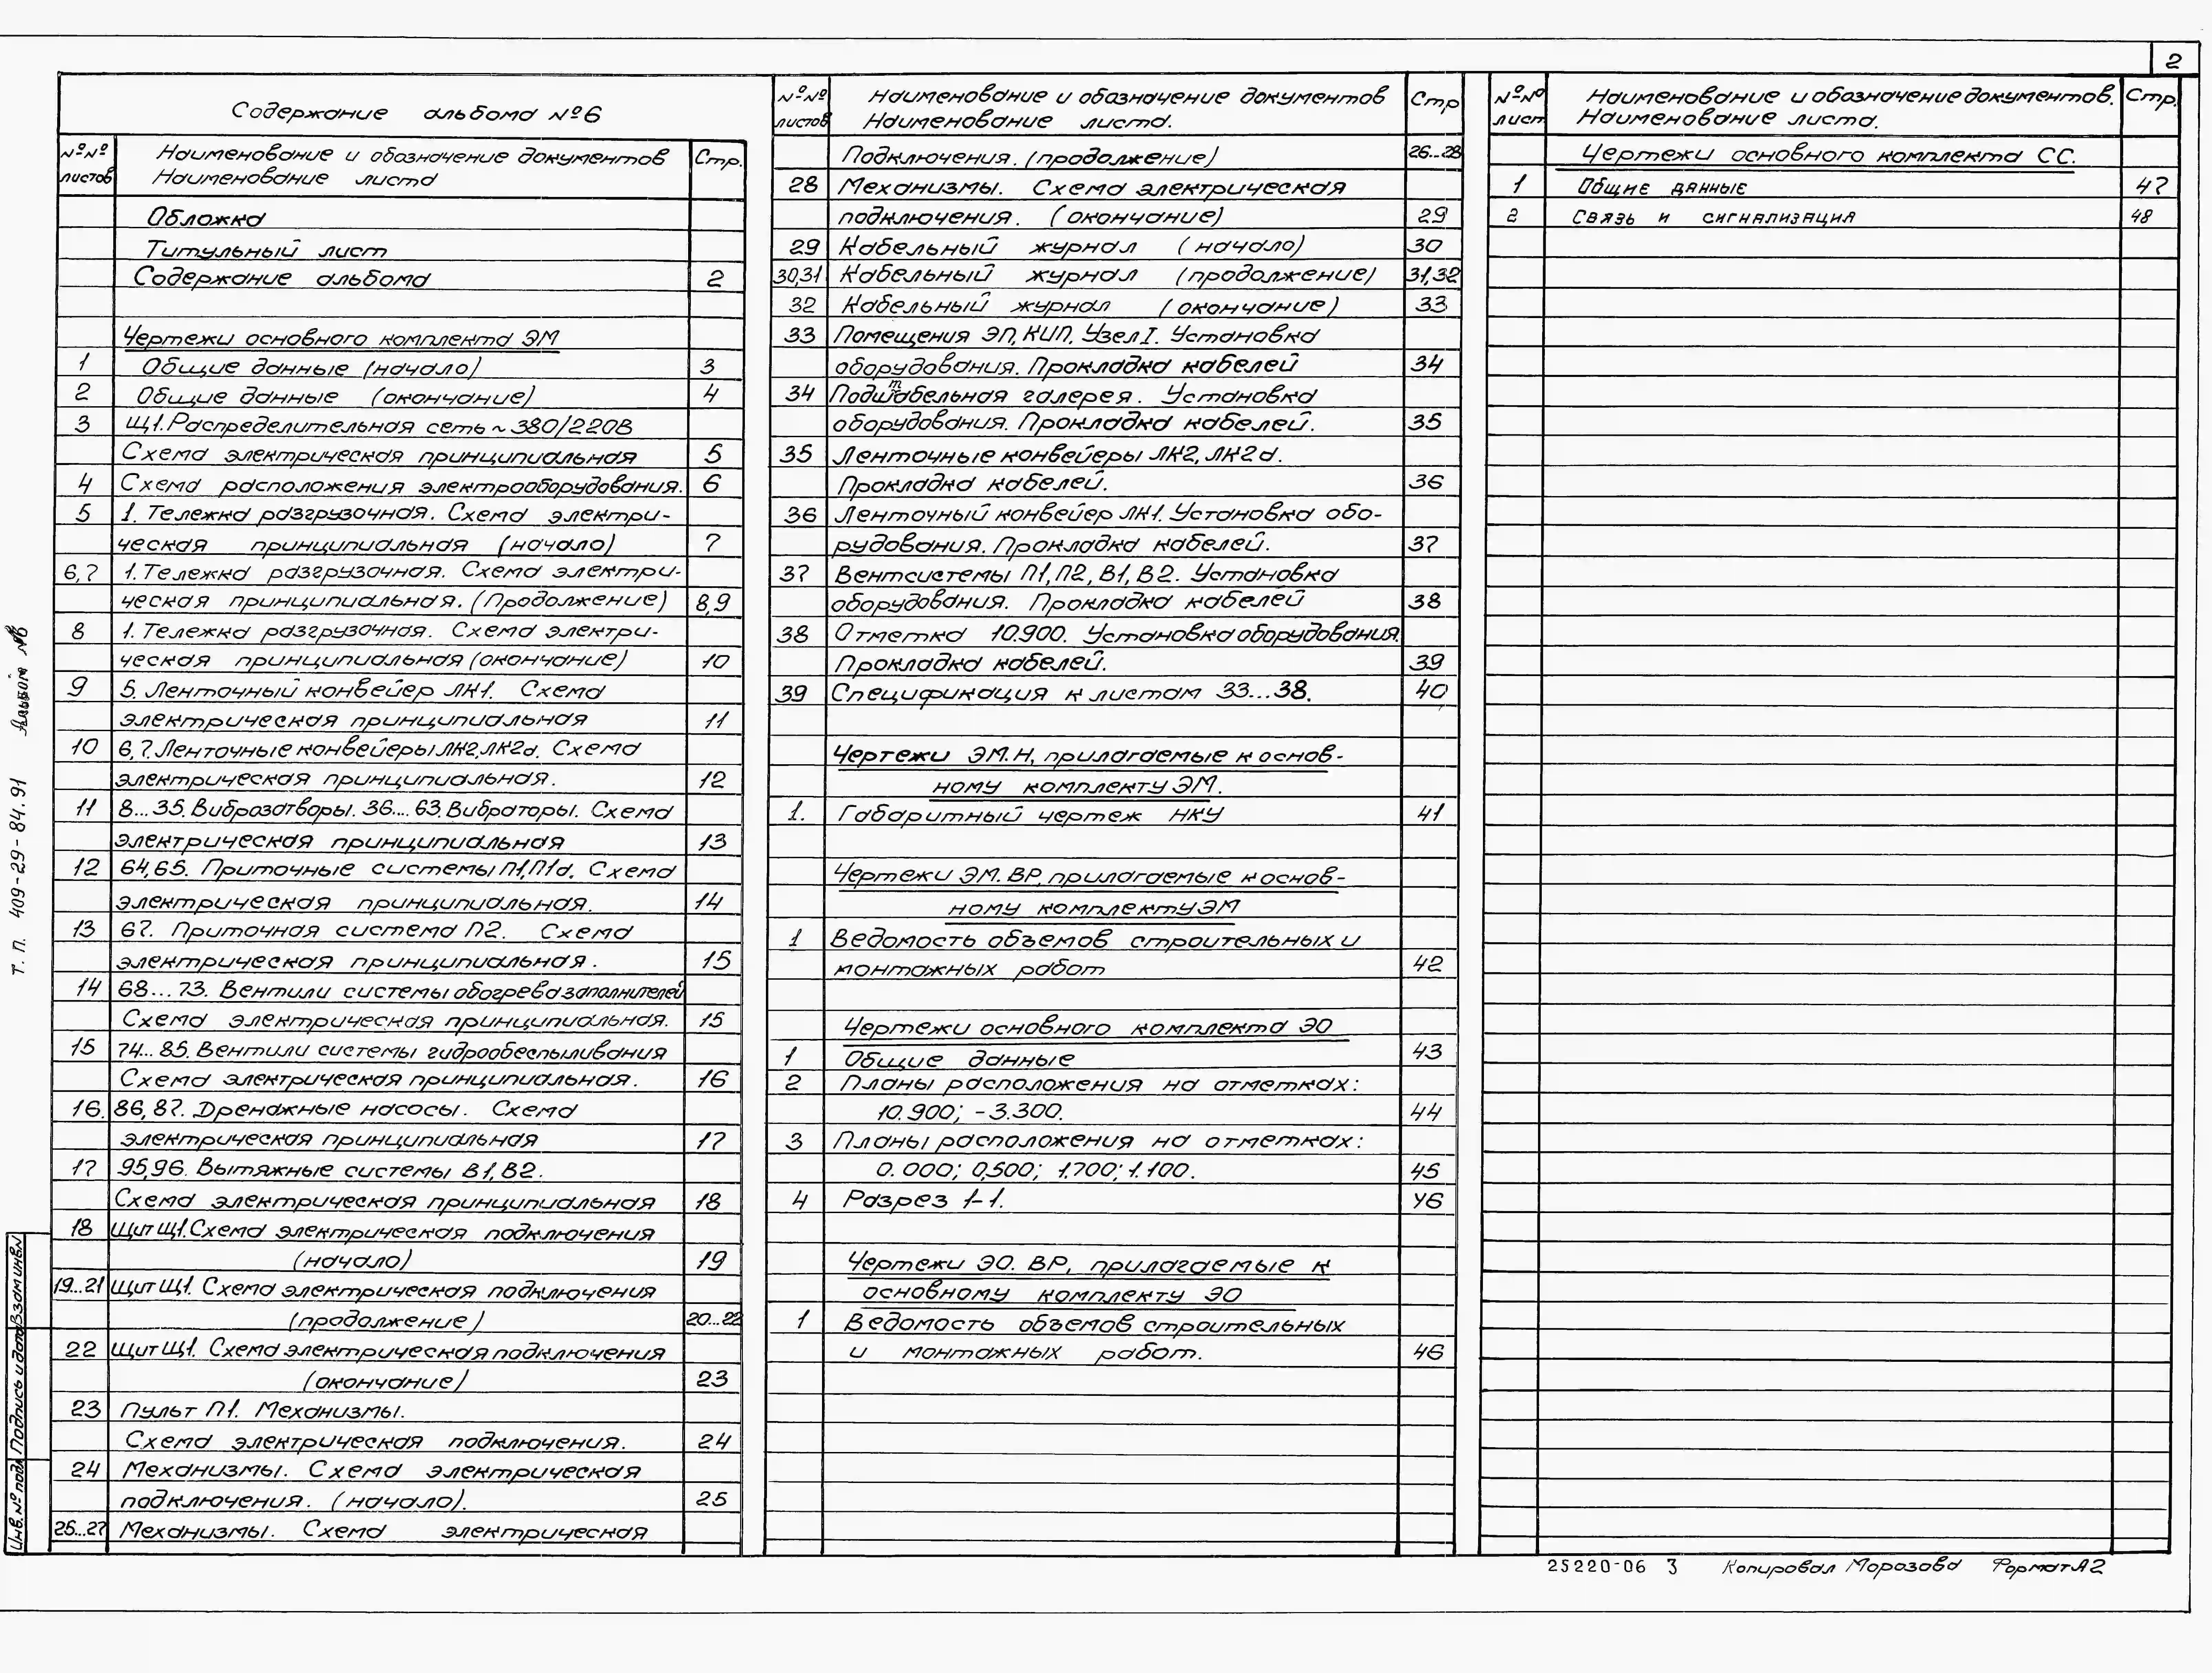 2
Содержание альбома №6
№№ листов
Наименование и обозначение документов
Наименование листа
Стр.
Обложка
Титульный лист
Содержание альбома 2
Чертежи основного комплекта ЭМ
1 Общие данные (начало) 3
2 Общие данные (окончание) 4
3 Щ1. Распределительная сеть ~380/220В
Схема электрическая принципиальная 5
4 Схема расположения электрооборудования. 6
5 1. Тележка разгрузочная. Схема электри-
ческая принципиальная (начало) 7
6,7 1. Тележка разгрузочная. Схема электри-
ческая принципиальная. (Продолжение) 8,9
8 1. Тележка разгрузочная. Схема электри-
ческая принципиальная (окончание) 10
9 5. Ленточный конвейер ЛК1. Схема
электрическая принципиальная 11
10 6,7. Ленточные конвейеры ЛК2, ЛК2а. Схема
электрическая принципиальная. 12
11 8...35. Виброзатворы. 36...63. Вибраторы. Схема
электрическая принципиальная 13
12 64,65. Приточные системы П1, П1а. Схема
электрическая принципиальная. 14
13 67. Приточная система П2. Схема
электрическая принципиальная. 15
14 68...73. Вентили системы обогрева заполнителей
Схема электрическая принципиальная. 15
15 74...85. Вентили системы гидрообеспыливания
Схема электрическая принципиальная. 16
16. 86,87. Дренажные насосы. Схема
электрическая принципиальная 17
17 95,96. Вытяжные системы В1, В2.
Схема электрическая принципиальная 18
18 Щит Щ1. Схема электрическая подключения
(начало) 19
19...21 Щит Щ1. Схема электрическая подключения
(продолжение) 20...22
22 Щит Щ1. Схема электрическая подключения
(окончание) 23
23 Пульт П1. Механизмы.
Схема электрическая подключения. 24
24 Механизмы. Схема электрическая
подключения. (начало). 25
25...27 Механизмы. Схема электрическая
№№ листов
Наименование и обозначение документов
Наименование листа.
Стр
Подключения. (продолжение) 26...28
28 Механизмы. Схема электрическая
подключения. (окончание) 29
29 Кабельный журнал (начало) 30
30,31 Кабельный журнал (продолжение) 31,32
32 Кабельный журнал (окончание) 33
33 Помещения ЭП, КИП. Узел I. Установка
оборудования. Прокладка кабелей 34
34 Подштабельная галерея. Установка
оборудования. Прокладка кабелей. 35
35 Ленточные конвейеры ЛК2, ЛК2а.
Прокладка кабелей. 36
36 Ленточный конвейер ЛК1. Установка обо-
рудования. Прокладка кабелей. 37
37 Вентсистемы П1, П2, В1, В2. Установка
оборудования. Прокладка кабелей 38
38 Отметка 10.900. Установка оборудования.
Прокладка кабелей. 39
39 Спецификация к листам 33...38. 40
Чертежи ЭМ.Н, прилагаемые к основ-
ному комплекту ЭМ.
1. Габаритный чертеж НКУ 41
Чертежи ЭМ. ВР, прилагаемые к основ-
ному комплекту ЭМ
1 Ведомость объемов строительных и
монтажных работ 42
Чертежи основного комплекта ЭО
1 Общие данные 43
2 Планы расположения на отметках:
10.900; -3.300. 44
3 Планы расположения на отметках:
0.000; 0,500; 1.700; 1.100. 45
4 Разрез 1-1. 46
Чертежи ЭО. ВР, прилагаемые к
основному комплекту ЭО
1 Ведомость объемов строительных
и монтажных работ. 46
№№ лист
Наименование и обозначение документов.
Наименование листа.
Стр.
Чертежи основного комплекта СС.
1 Общие данные 47
2 Связь и сигнализация 48
Т. П. 409-29-84.91 Альбом №6
Инв. № подл Подпись и дата Взам инв. N
25220-06 3 Копировал Морозова Формат А2